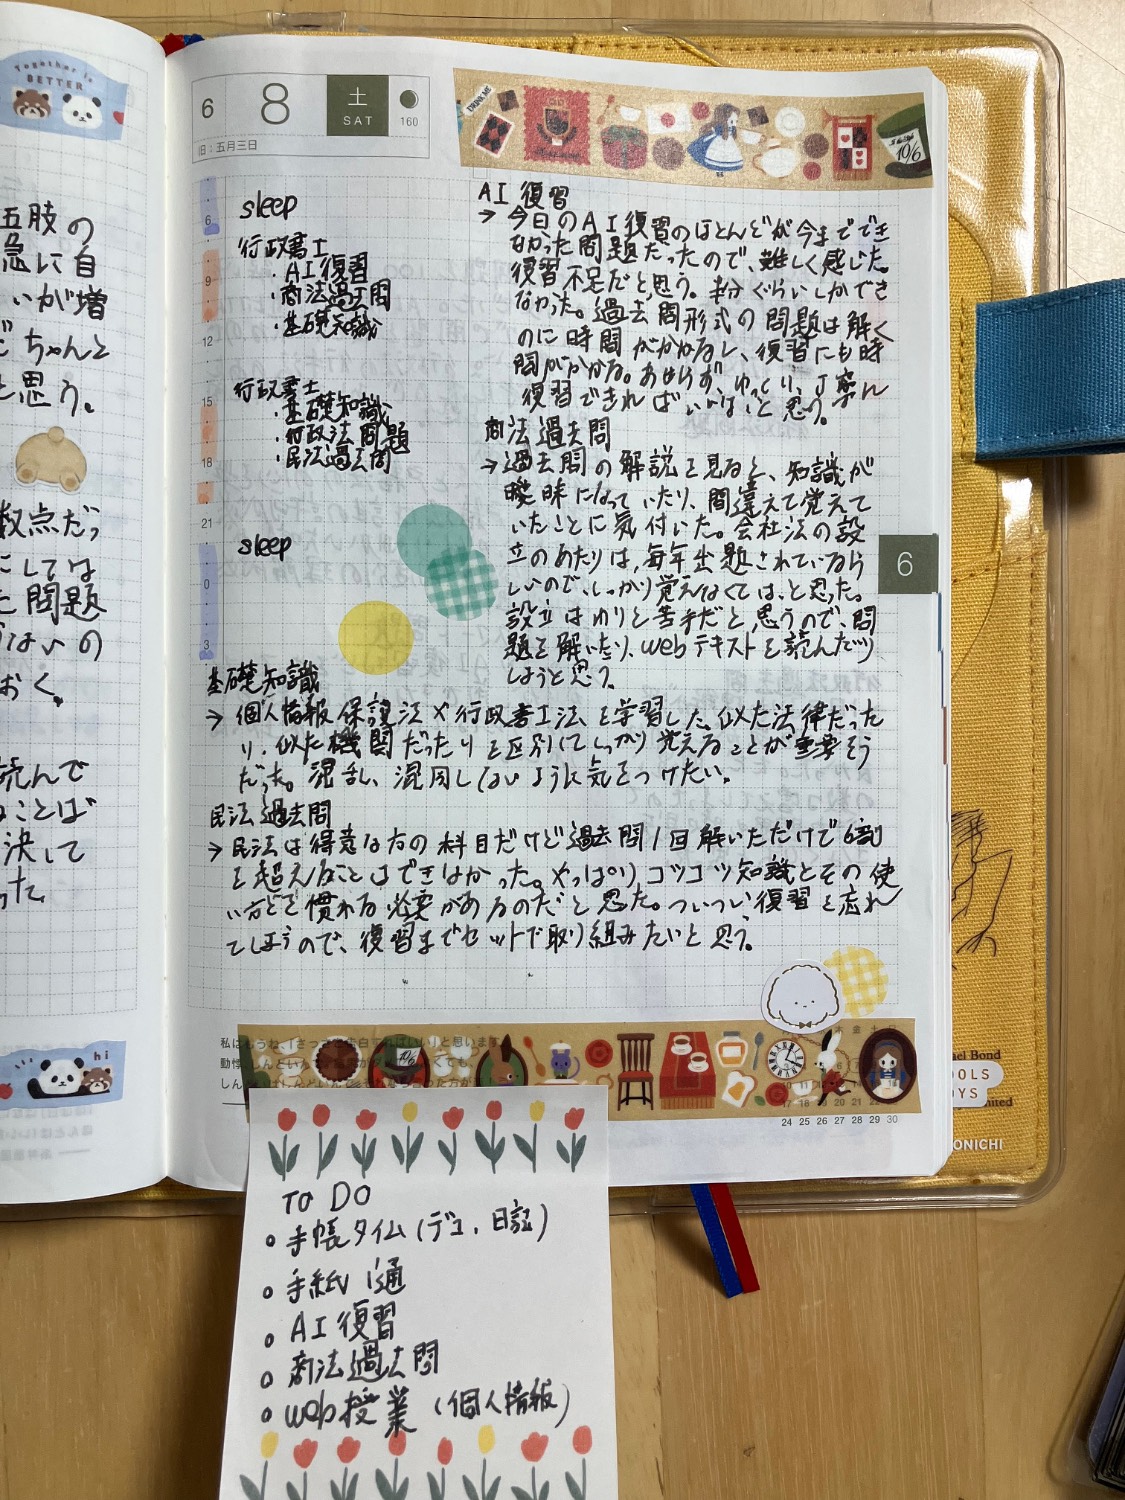 Together is
BETTER
五肢の
急に自
いが増
ちゃんと
と思う。
数点だっ
にしては
た問題
はないの
おく。
読んで
ることば
決して
った
hi
6
8
土
SAT
160
旧:五月三日
DRINK ME
10/6
6
9
12
15
18
21
0
3
sleep
行政書士
・AI復習
・商法過去問
・基礎知識
行政書士
・基礎知識
・行政法問題
・民法過去問
sleep
AI復習
→今日のAI復習のほとんどが今までできなかった問題だったので、難しく感じた。
復習不足だと思う。半分ぐらいしかでき
なかった。過去問形式の問題は解く
のに時間がかかるし、復習にも時
間がかかる。あせらず、ゆっくり、丁寧に
復習できればいいなと思う。
商法過去問
→過去問の解説を見ると、知識が
曖昧になっていたり、間違えて覚えて
いたことに気付いた。会社法の設
立のあたりは、毎年出題されているら
しいので、しっかり覚えなくては、と思った。
設立はわりと苦手だと思うので、問
題を解いたり、webテキストを読んだり
しようと思う。
基礎知識
→個人情報保護法や行政書士法を学習した。似た法律だった
り、似た機関だったりを区別してしっかり覚えることが重要そう
だった。混乱、混同しないように気をつけたい。
民法過去問
→民法は得意な方の科目だけど過去問1回解いただけで6割
を超えることはできなかった。やっぱりコツコツ知識とその使
い方とで慣れる必要があるのだと思った。ついつい復習を忘れ
てしまうので、復習までセットで取り組みたいと思う。
6
10/6
24 25 26 27 28 29 30
ael Bond
OOLS
OYS
ONICHI
TO DO
・手帳タイム(デコ、日記)
・手紙1通
・AI復習
・商法過去問
・web授業(個人情報)